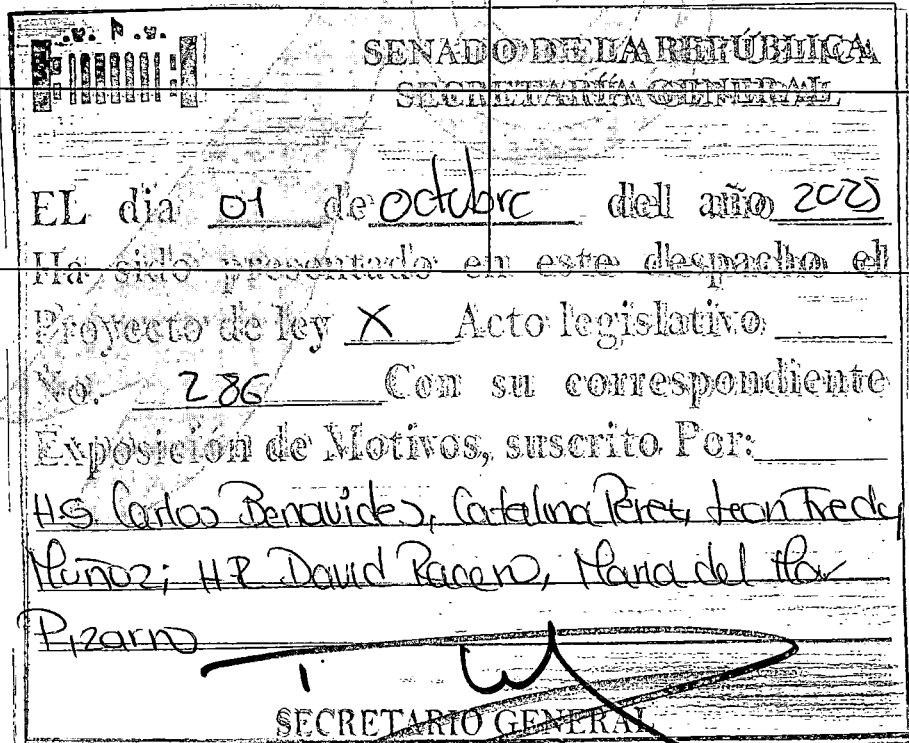 SENADO DE LA REPÚBLICA
SECRETARÍA GENERAL
EL dia 01 de octubre del año 2025
Ha sido presentado en este despacho el
Proyecto de ley X Acto legislativo
No. 286 Con su correspondiente
Exposición de Motivos, suscrito Por:
H.S. Carlos Benavides, Catalina Pérez, Leon Fredy
Muñoz; H.R. David Racero, Maria del Mar
Pizarro
SECRETARIO GENERAL